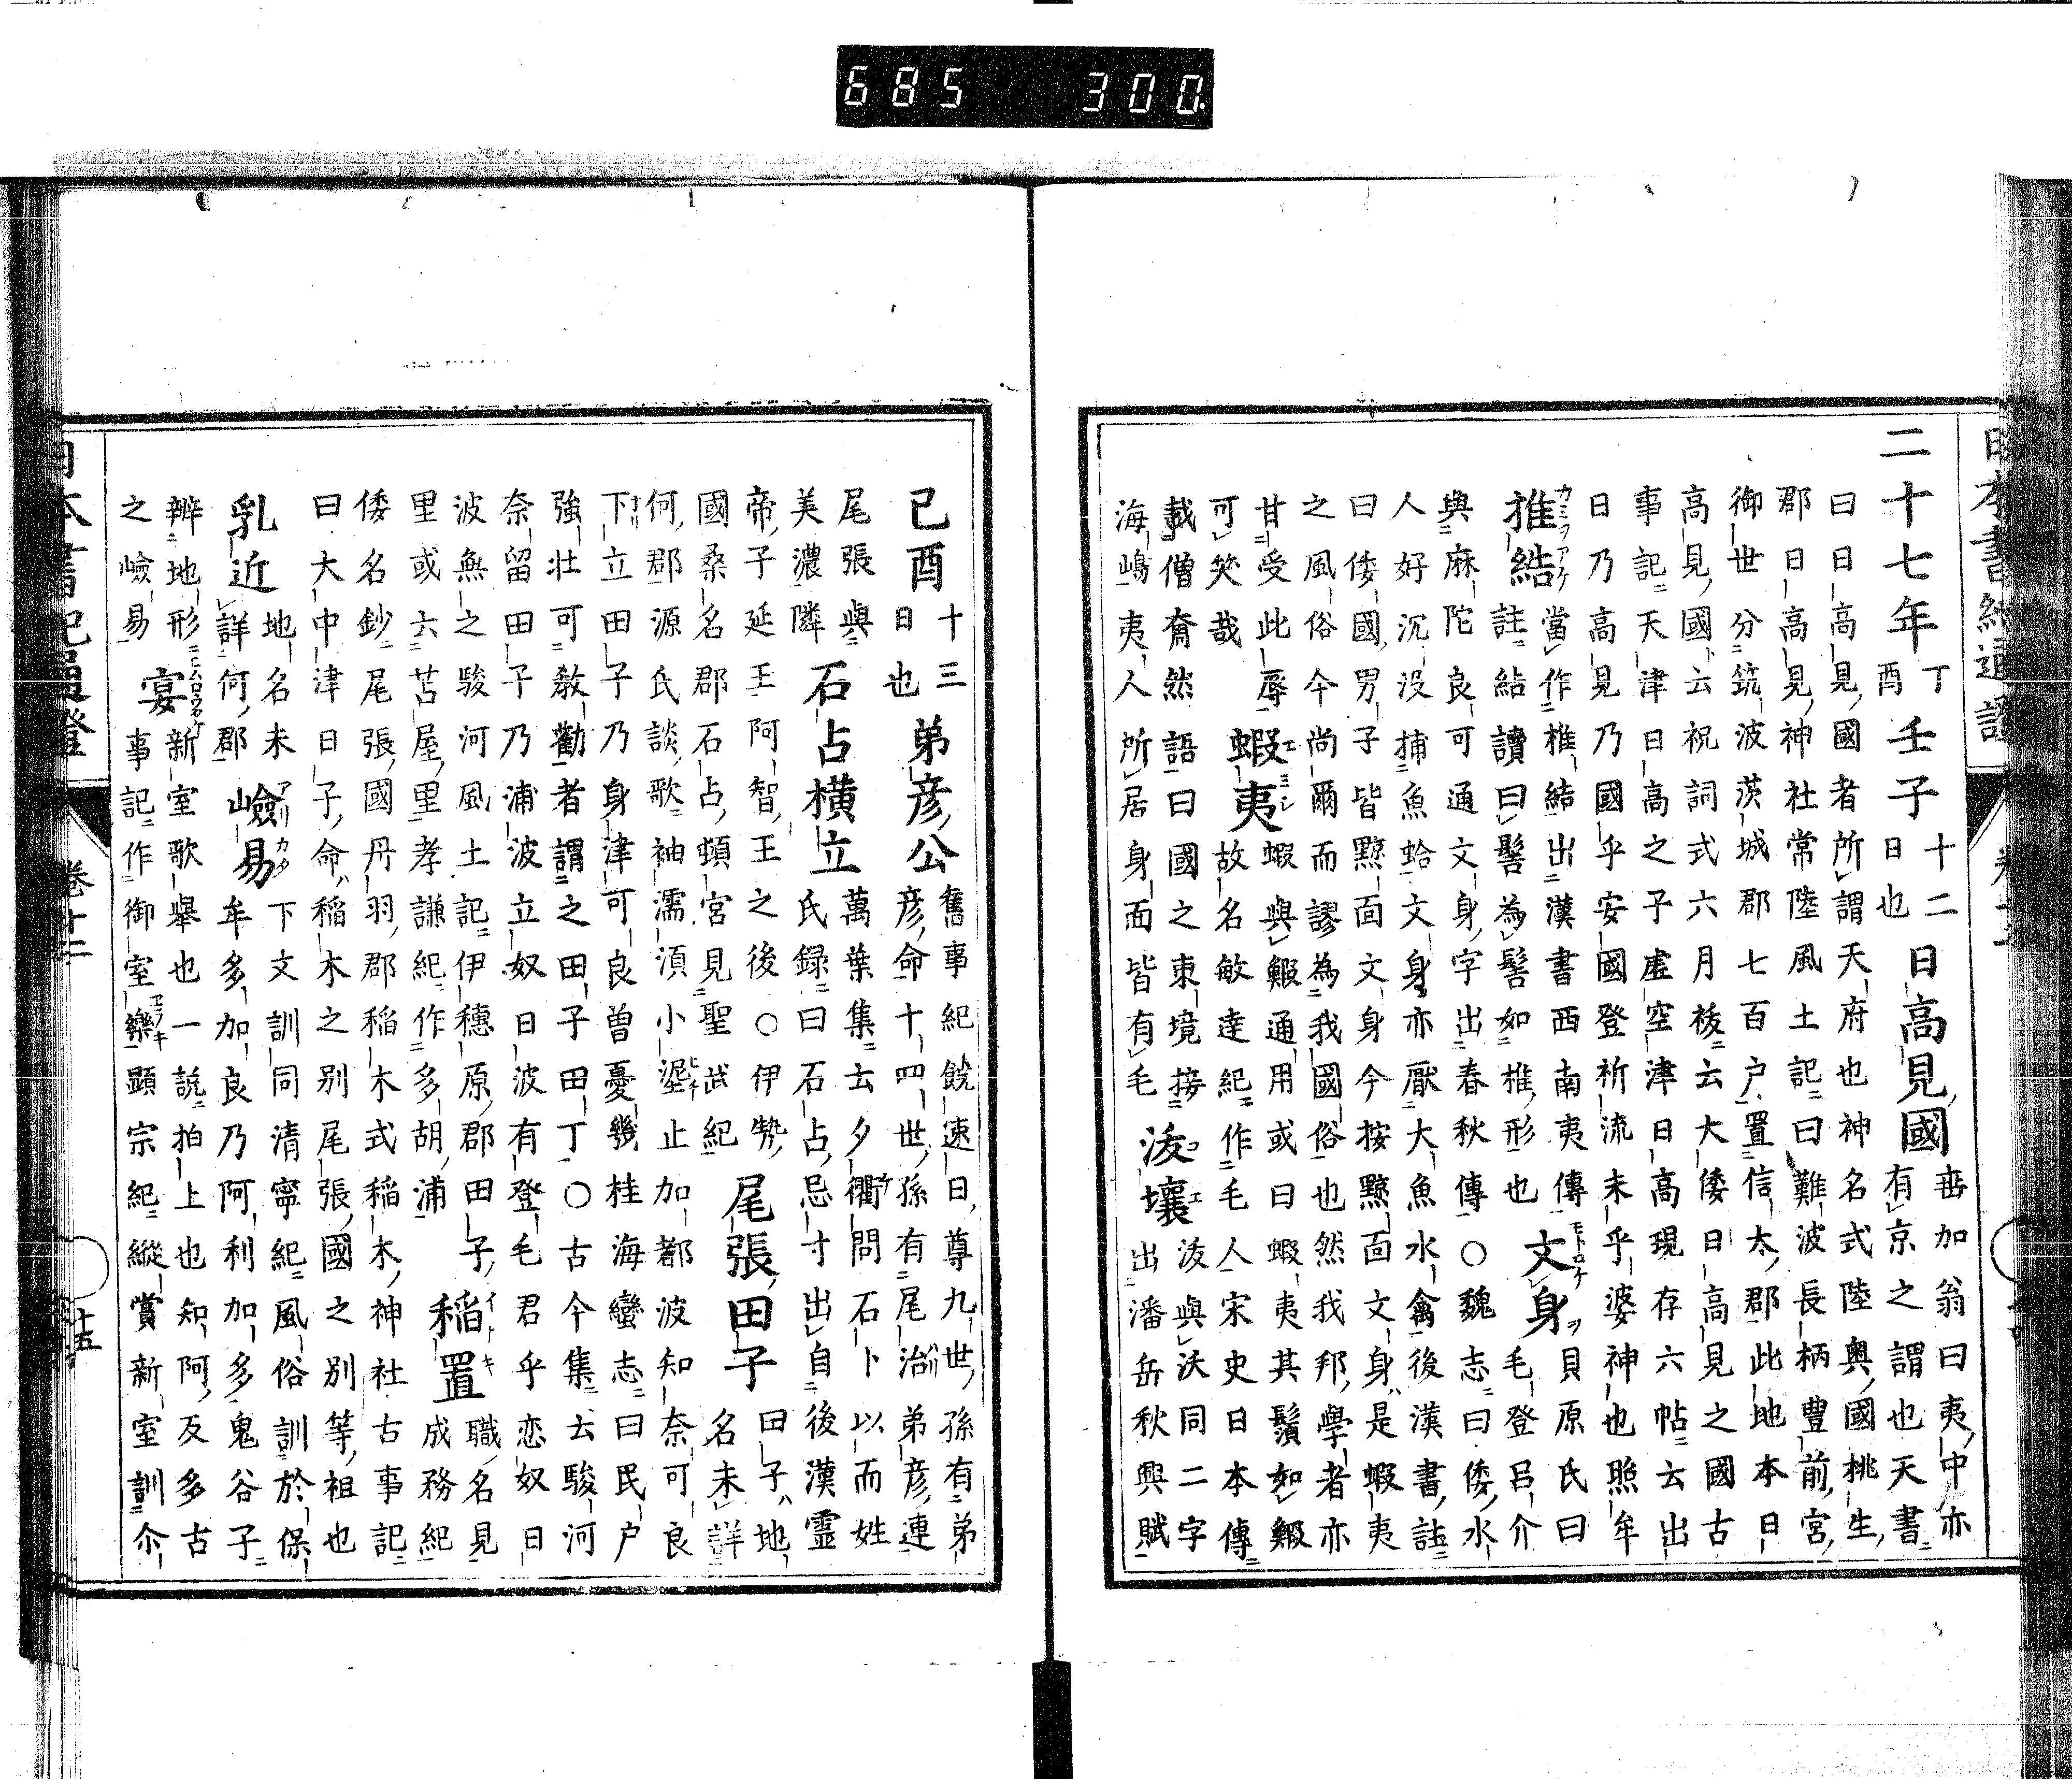 685 300
二十七年
丁
酉
壬子
十二
日也
日高見國
加翁曰夷中亦
有京之謂也天書
曰日高見國者所謂天府也神名式陸奧國桃生
郡日高見神社常陸風土記曰難波長柄豊前宮
御世分筑波茨城郡七百户置信太郡此地本日
高見國云祝詞式六月祓云大倭日高見之國古
事記天津日高之子虚空津日高現存六帖云出
日乃高見乃國乎安國登祈流末乎婆神也照牟
推結
カミヲアケ
當作椎結出漢書西南夷傳
註結讀曰髻為髻如椎形也
文身
モトロケヲ
貝原氏曰
毛登呂介
與麻陀良可通文身字出春秋傳○魏志曰倭水
人好沉没捕魚蛤文身亦厭大魚水禽後漢書註
曰倭國男子皆黥面文身今按黥面文身是蝦夷
之風俗今尚爾而謬為我國俗也然我邦學者亦
甘受此辱
可笑哉
蝦夷
エミシ
蝦與鰕通用或曰蝦夷其鬚如鰕
故名敏達紀作毛人宋史日本傳
載僧奝然語曰國之東境接
海嶋夷人所居身面皆有毛
浚壤
コエ
浚與沃同二字
出潘岳秋興賦
己酉
十三
日也
弟彦公
舊事紀饒速日尊九世孫有弟
彦命十四世孫有尾治弟彦連
尾張與
美濃隣
石占横立
萬葉集云夕衢問石卜以而姓
氏録曰石占忌寸出自後漢靈
帝子延王阿智王之後○伊勢
國桑名郡石占頓宮見聖武紀
尾張田子
田子地
名未詳
何郡源氏談歌袖濡湏小渥止加都波知奈可良
下立田子乃身津可良曽憂幾桂海蠻志曰民户
強壯可教勸者謂之田子田丁○古今集云駿河
奈留田子乃浦波立奴日波有登毛君乎恋奴日
波無之駿河風土記伊穗原郡田子
里或云苫屋里孝謙紀作多胡浦
稲置
イナキ
職名見
成務紀
倭名鈔尾張國丹羽郡稲木式稲木神社古事記
曰大中津日子命稲木之别尾張國之别等祖也
乳近
地名未
詳何郡
嶮易
アリカタ
下文訓同清寧紀風俗訓於保
牟多加良乃阿利加多鬼谷子
辨地形
之嶮易
宴
ニヒムロウタゲ
新室歌舉也一説拍上也知阿反多古
事記作御室樂顯宗紀縱賞新室訓尒
日本書紀通證
卷十二
十五